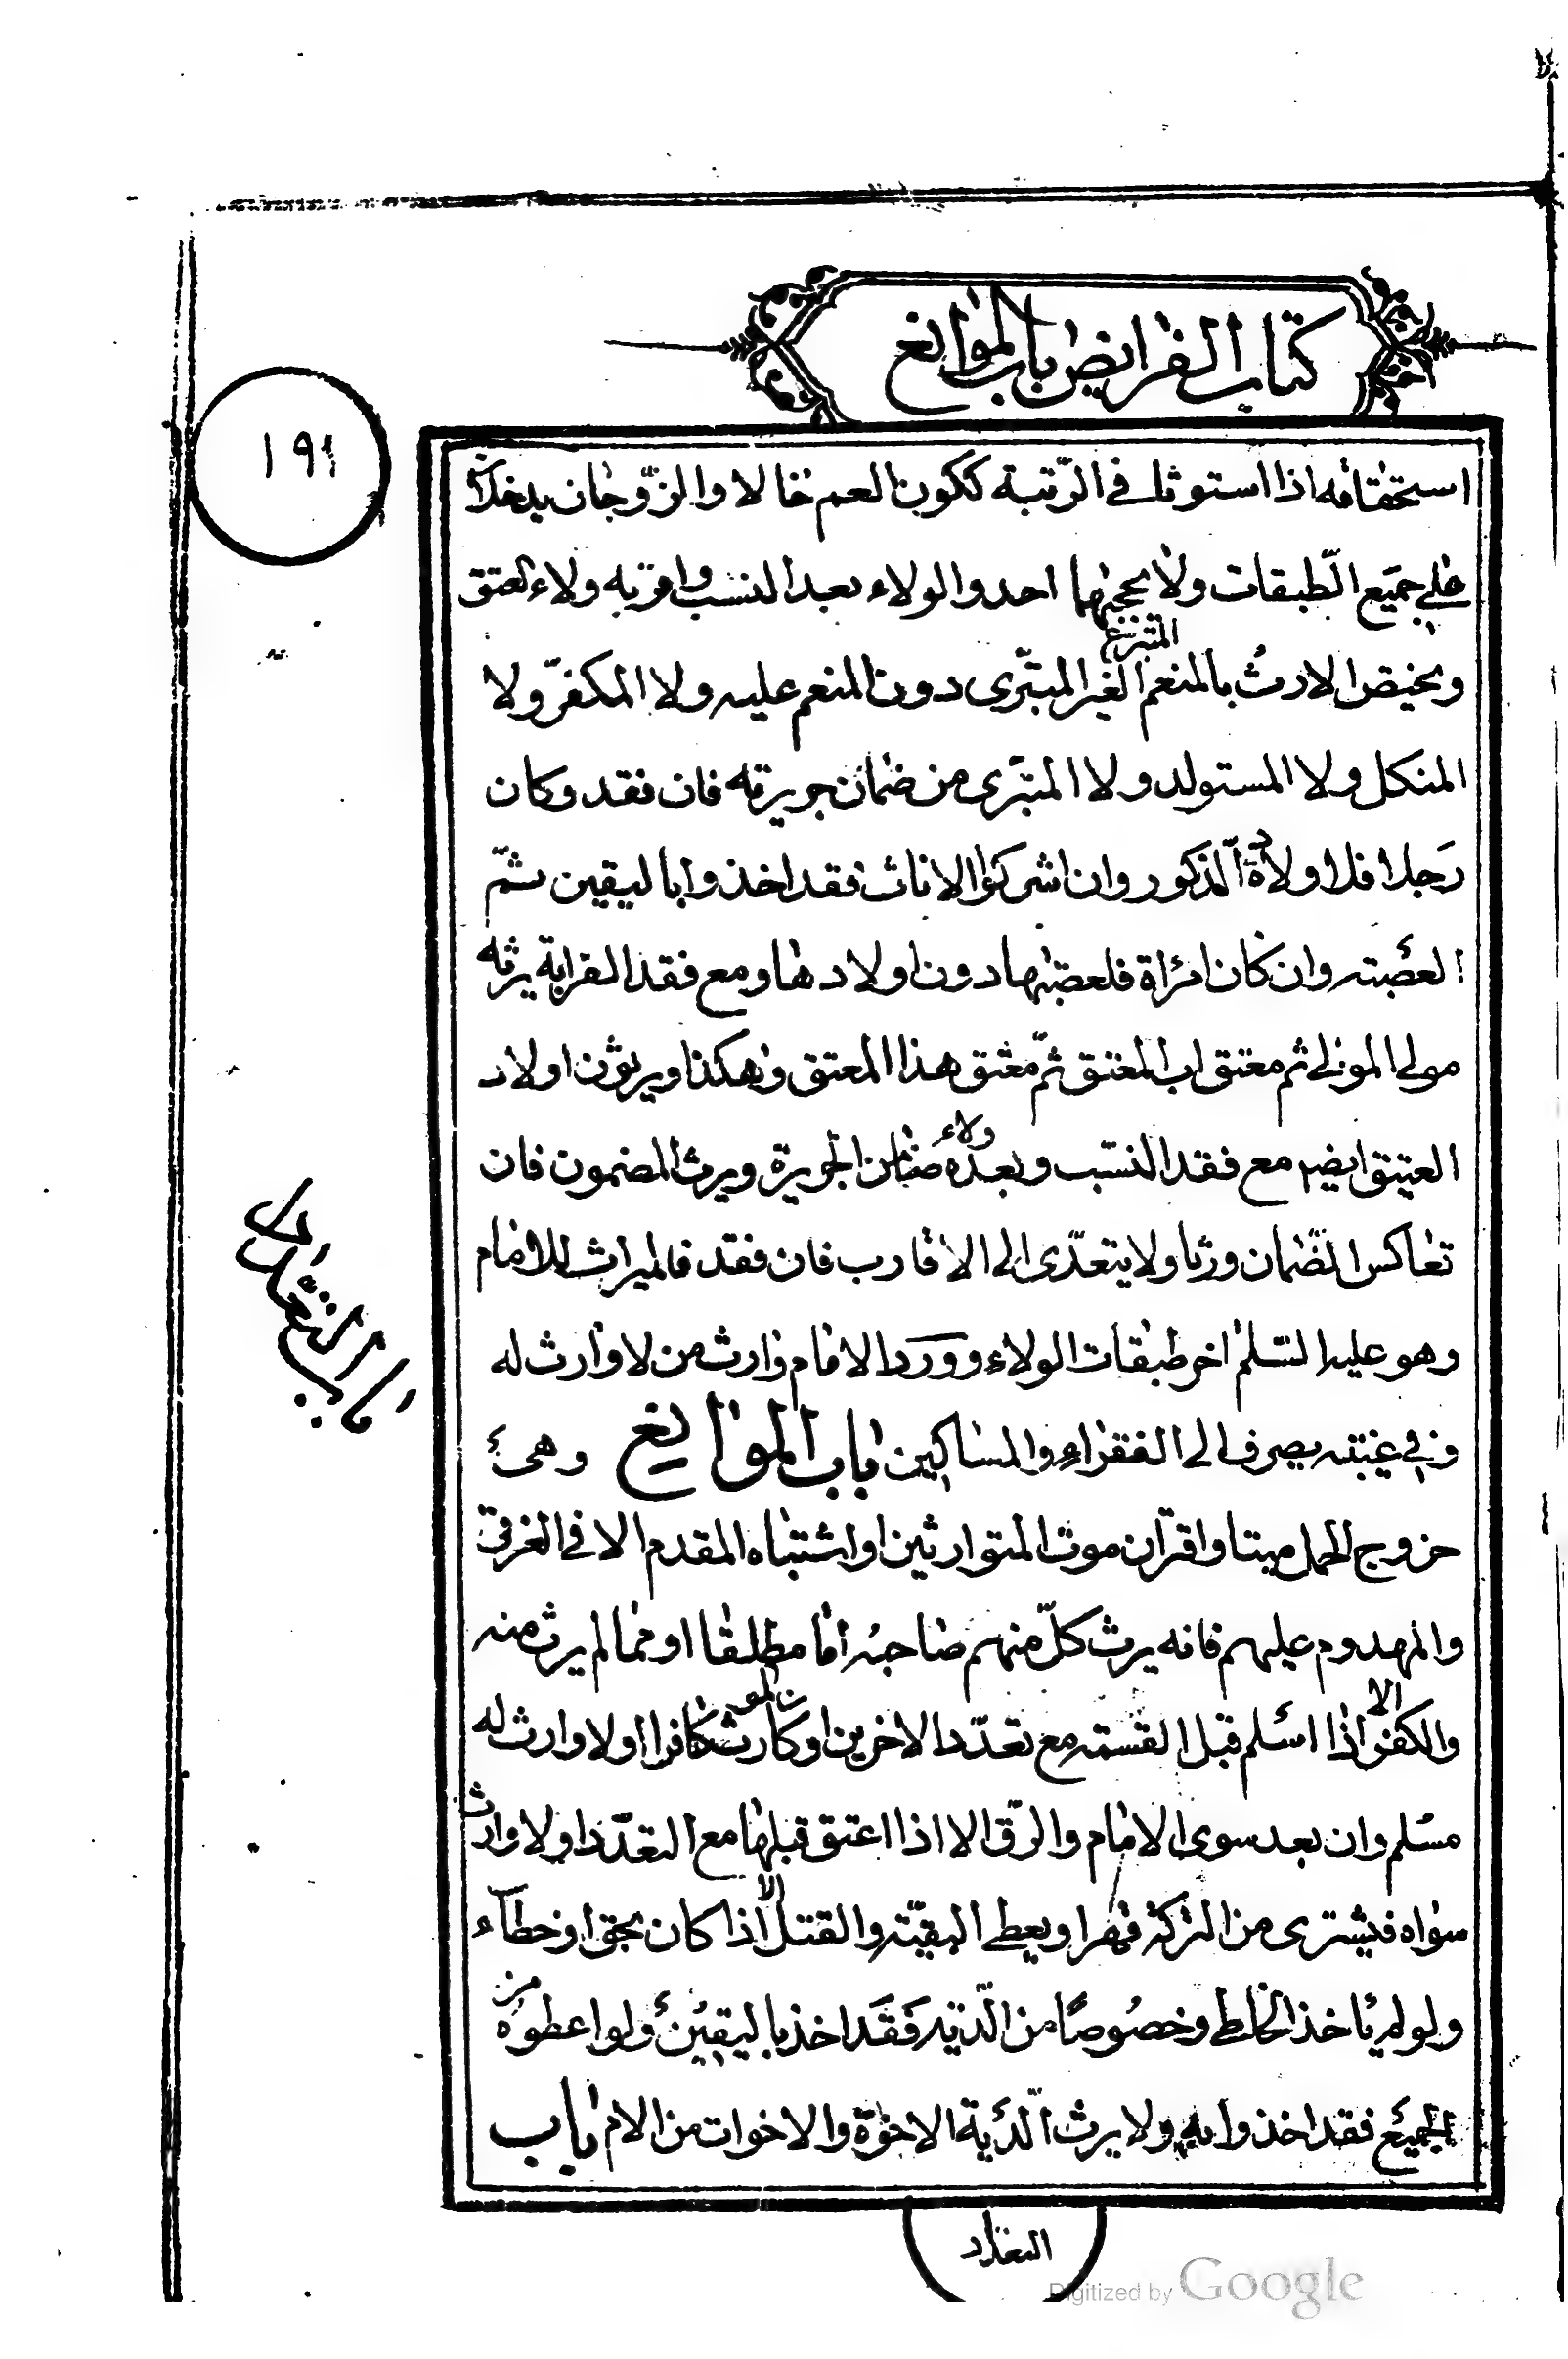 كتاب الفرايض باب الموانع
١٩١
استحقاقه اذا استوثا في الرّتبة ككون العم خالا والزّوجان يدخلان
على جميع الطّبقات ولا يحجبهما احد والولاء بعد النسب واقربه ولاء العتق
المتبرع
ويختص الارث بالمنعم الغير المتبرّى دون المنعم عليه ولا المكفّر ولا
المنكل ولا المستولد ولا المتبرّى من ضمان جريرته فان فقد وكان
رجلا فلاولاده الذكور وان اشركوا الاناث فقد اخذوا باليقين ثمّ
العصبته وان كان امرأة فلعصبتها دون اولادها ومع فقد القرابة يرثه
مولى المولى ثم معتق اب المعتق ثمّ معتق هذا المعتق وهكذا ويرثون اولاد
ولاء
العتيق ايضا مع فقد النسب وبعده ضامن الجريرة ويرث المضمون فان
تعاكس الضّمان ورثا ولا يتعدّى الى الاقارب فان فقد فالميراث للامام
وهو عليه السّلم اخر طبقات الولاء وورد الامام وارث من لا وارث له
وفي غيبته يصرف الى الفقراء والمساكين باب الموانع وهى
خروج الحمل ميتا واقتران موت المتوارثين او اشتباه المقدم الا في الغرقى
والمهدوم عليهم فانه يرث كلّ منهم صاحبه امّا مطلقا او ممّا لم يرث منه
الا ن المو
والكفر اذا اسلم قبل القسمة مع تعدّد الاخرين او كا رث كافرا او لا وارث له
مسلم وان بعد سوى الامام والرّق الا اذا اعتق قبلها مع التعدّد او لا وارث
الا
سواه فيشترى من التركة قهرا ويعطى البقيّة والقتل اذا كان بحق او خطآء
ولو لم ياخذ الخاطئ وخصوصًا من الدّية فقد اخذ باليقين ولو اعطوه من
الجميع فقد اخذوا به ولا يرث الدّية الاخوة والاخوات من الام باب
باب التقادير